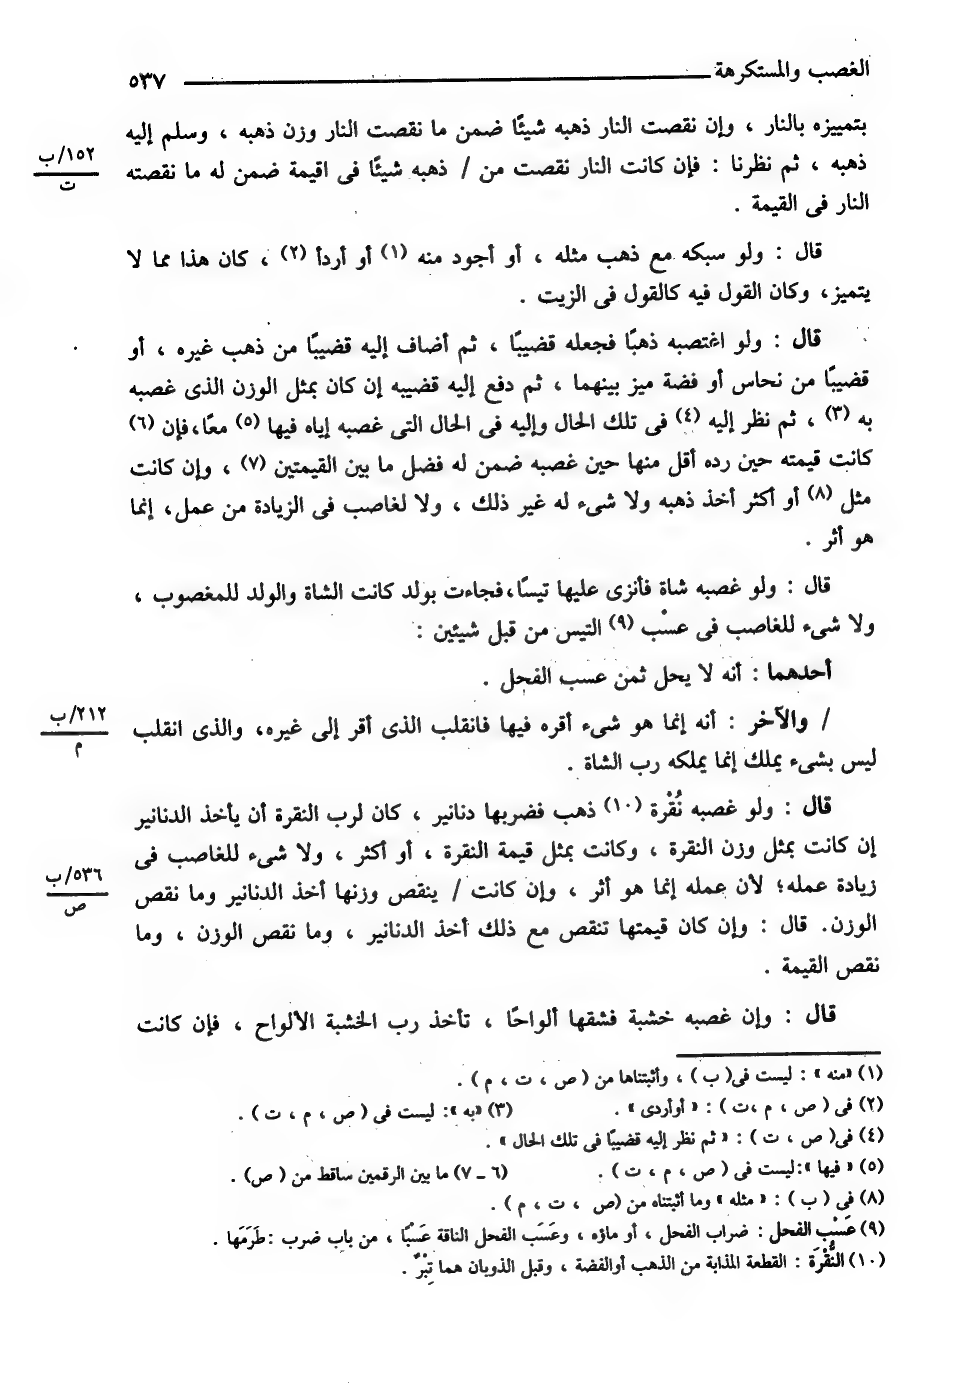 الغصب والمستكرهة ٥٣٧
بتمييزه بالنار ، وإن نقصت النار ذهبه شيئًا ضمن ما نقصت النار وزن ذهبه ، وسلم إليه
ذهبه ، ثم نظرنا : فإن كانت النار نقصت من / ذهبه شيئًا فى اقيمة ضمن له ما نقصته
١٥٢/ب
ت
النار فى القيمة .
قال : ولو سبكه مع ذهب مثله ، أو أجود منه (١) أو أردأ (٢) ، كان هذا مما لا
يتميز، وكان القول فيه كالقول فى الزيت .
قال : ولو اغتصبه ذهبًا فجعله قضيبًا ، ثم أضاف إليه قضيبًا من ذهب غيره ، أو
قضيبًا من نحاس أو فضة ميز بينهما ، ثم دفع إليه قضيبه إن كان بمثل الوزن الذى غصبه
به (٣) ، ثم نظر إليه (٤) فى تلك الحال وإليه فى الحال التى غصبه إياه فيها (٥) معًا،فإن (٦)
كانت قيمته حين رده أقل منها حين غصبه ضمن له فضل ما بين القيمتين (٧) ، وإن كانت
مثل (٨) أو أكثر أخذ ذهبه ولا شىء له غير ذلك ، ولا لغاصب فى الزيادة من عمل، إنما
هو أثر .
قال : ولو غصبه شاة فأنزى عليها تيسًا،فجاءت بولد كانت الشاة والولد للمغصوب ،
ولا شىء للغاصب فى عسْب (٩) التيس من قبل شيئين :
أحدهما : أنه لا يحل ثمن عسب الفحل .
/ والآخر : أنه إنما هو شىء أقره فيها فانقلب الذى أقر إلى غيره، والذى انقلب
٢١٢/ب
م
ليس بشىء يملك إنما يملكه رب الشاة .
قال : ولو غصبه نُقْرة (١٠) ذهب فضربها دنانير ، كان لرب النقرة أن يأخذ الدنانير
إن كانت بمثل وزن النقرة ، وكانت بمثل قيمة النقرة ، أو أكثر ، ولا شىء للغاصب فى
زيادة عمله؛ لأن عمله إنما هو أثر ، وإن كانت / ينقص وزنها أخذ الدنانير وما نقص
٥٣٦/ب
ص
الوزن. قال : وإن كان قيمتها تنقص مع ذلك أخذ الدنانير ، وما نقص الوزن ، وما
نقص القيمة .
قال : وإن غصبه خشبة فشقها ألواحًا ، تأخذ رب الخشبة الألواح ، فإن كانت
(١) «منه» : ليست فى( ب ) ، وأثبتناها من ( ص ، ت ، م ) .
(٢) فى ( ص ، م ،ت ) : « أوأردى » . (٣) «به »: ليست فى ( ص ، م ، ت ) .
(٤) فى( ص ، ت ) : « ثم نظر إليه قضيبًا فى تلك الحال » .
(٥) « فيها »:ليست فى ( ص ، م ، ت ) . (٦ ـ ٧) ما بين الرقمين ساقط من ( ص) .
(٨) فى ( ب ) : « مثله » وما أثبتناه من (ص ، ت ، م ) .
(٩) عَسْب الفحل : ضراب الفحل ، أو ماؤه ، وعَسَب الفحل الناقة عَسْبًا ، من باب ضرب :طَرَمَها .
(١٠) النُّقْرَة : القطعة المذابة من الذهب أوالفضة ، وقبل الذوبان هما تِبْرٌ .